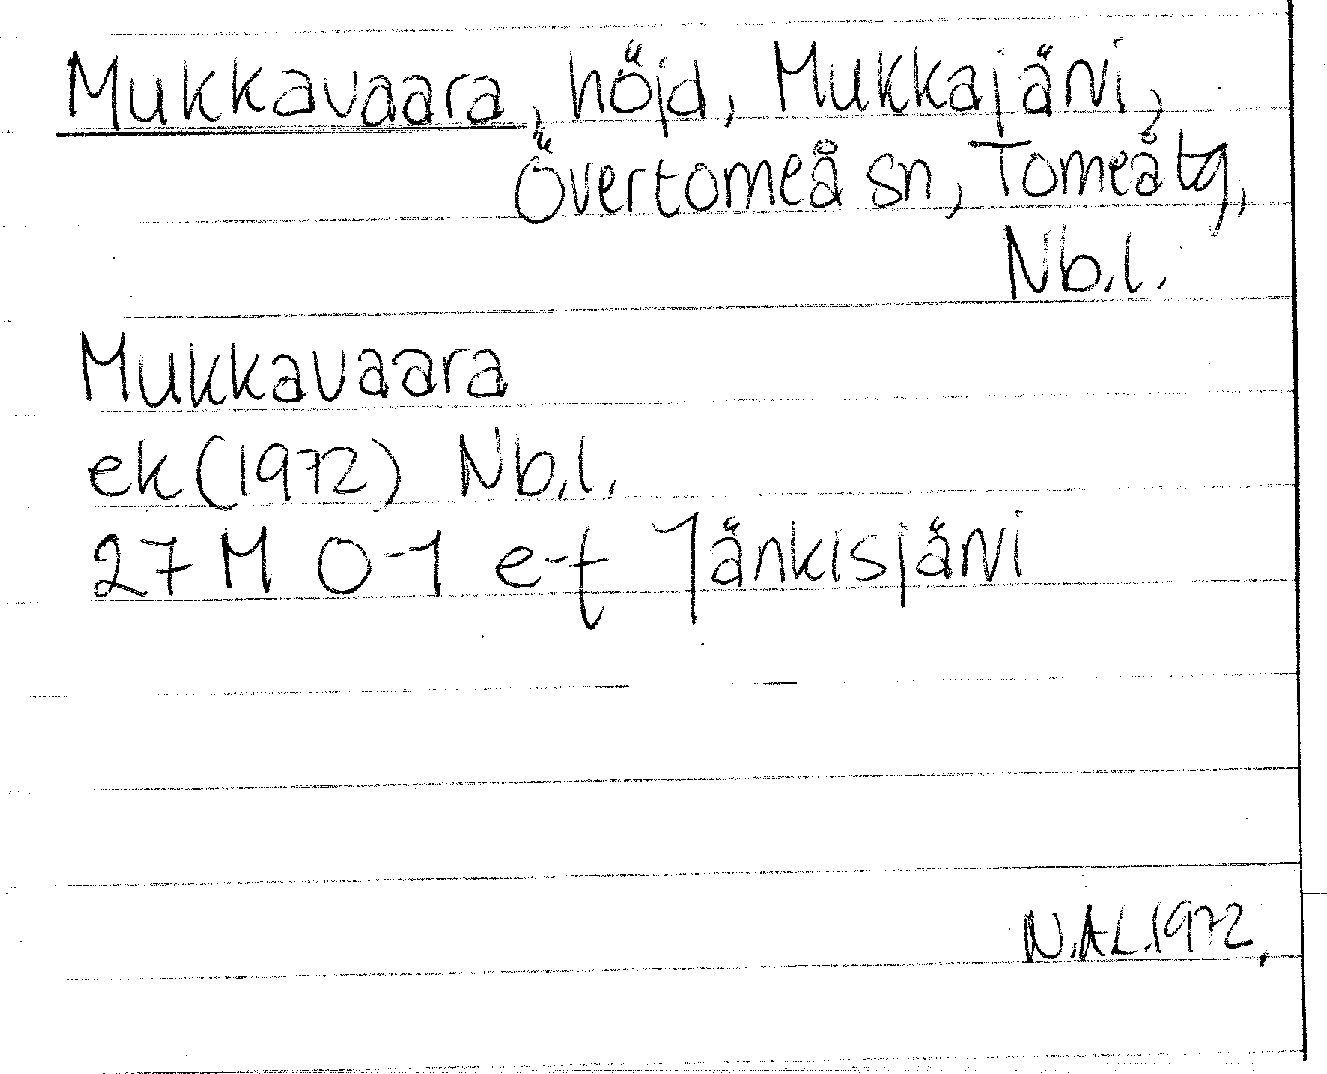 Mukkavaara, höjd, Mukkajärvi,
Övertorneå sn, Torneå tg,
Nb.l.
Mukkavaara
ek (1972) Nb.l.
27 M 0-1 e-f Jänkisjärvi
N.A.L. 1972.